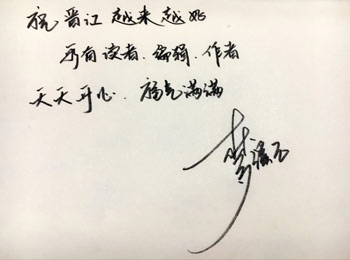 祝晋江越来越好
所有读者、编辑、作者
天天开心、福气满满
梦溪石